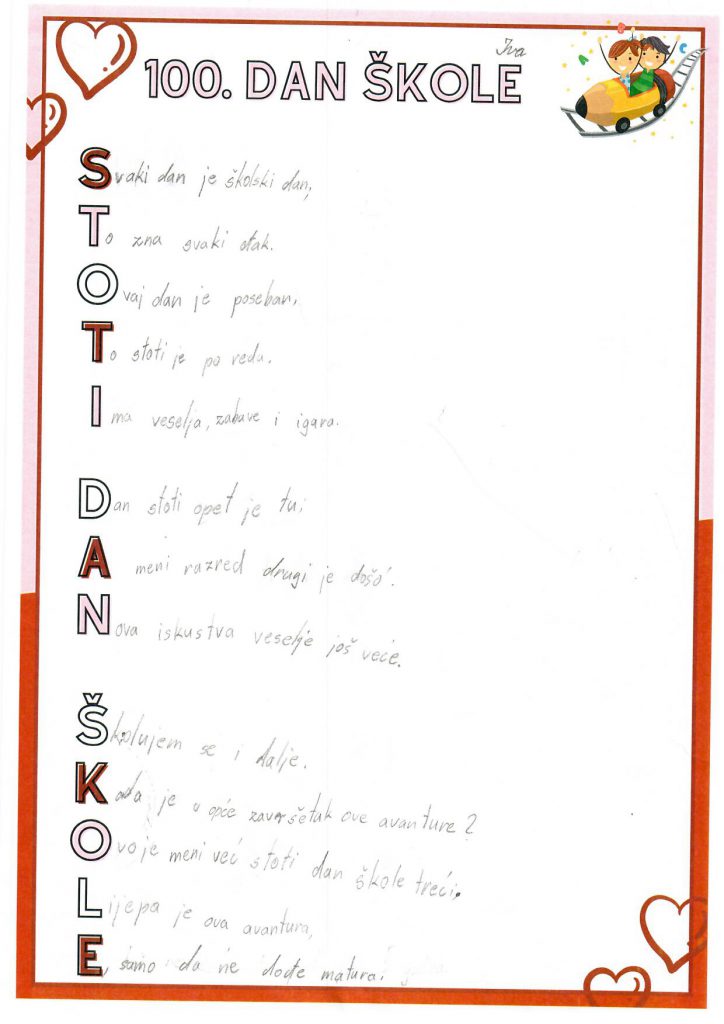 Iva
100. DAN ŠKOLE
Svaki dan je školski dan,
To zna svaki đak.
Ovaj dan je poseban,
To stoti je po redu.
Ima veselja, zabave i igara.
Dan stoti opet je tu,
A meni razred drugi je došo.
Nova iskustva veselje još veće.
Školujem se i dalje.
Kada je u opće završetak ove avanture?
Ovo je meni već stoti dan škole treći.
Lijepa je ova avantura,
E, samo da ne dođe matura.